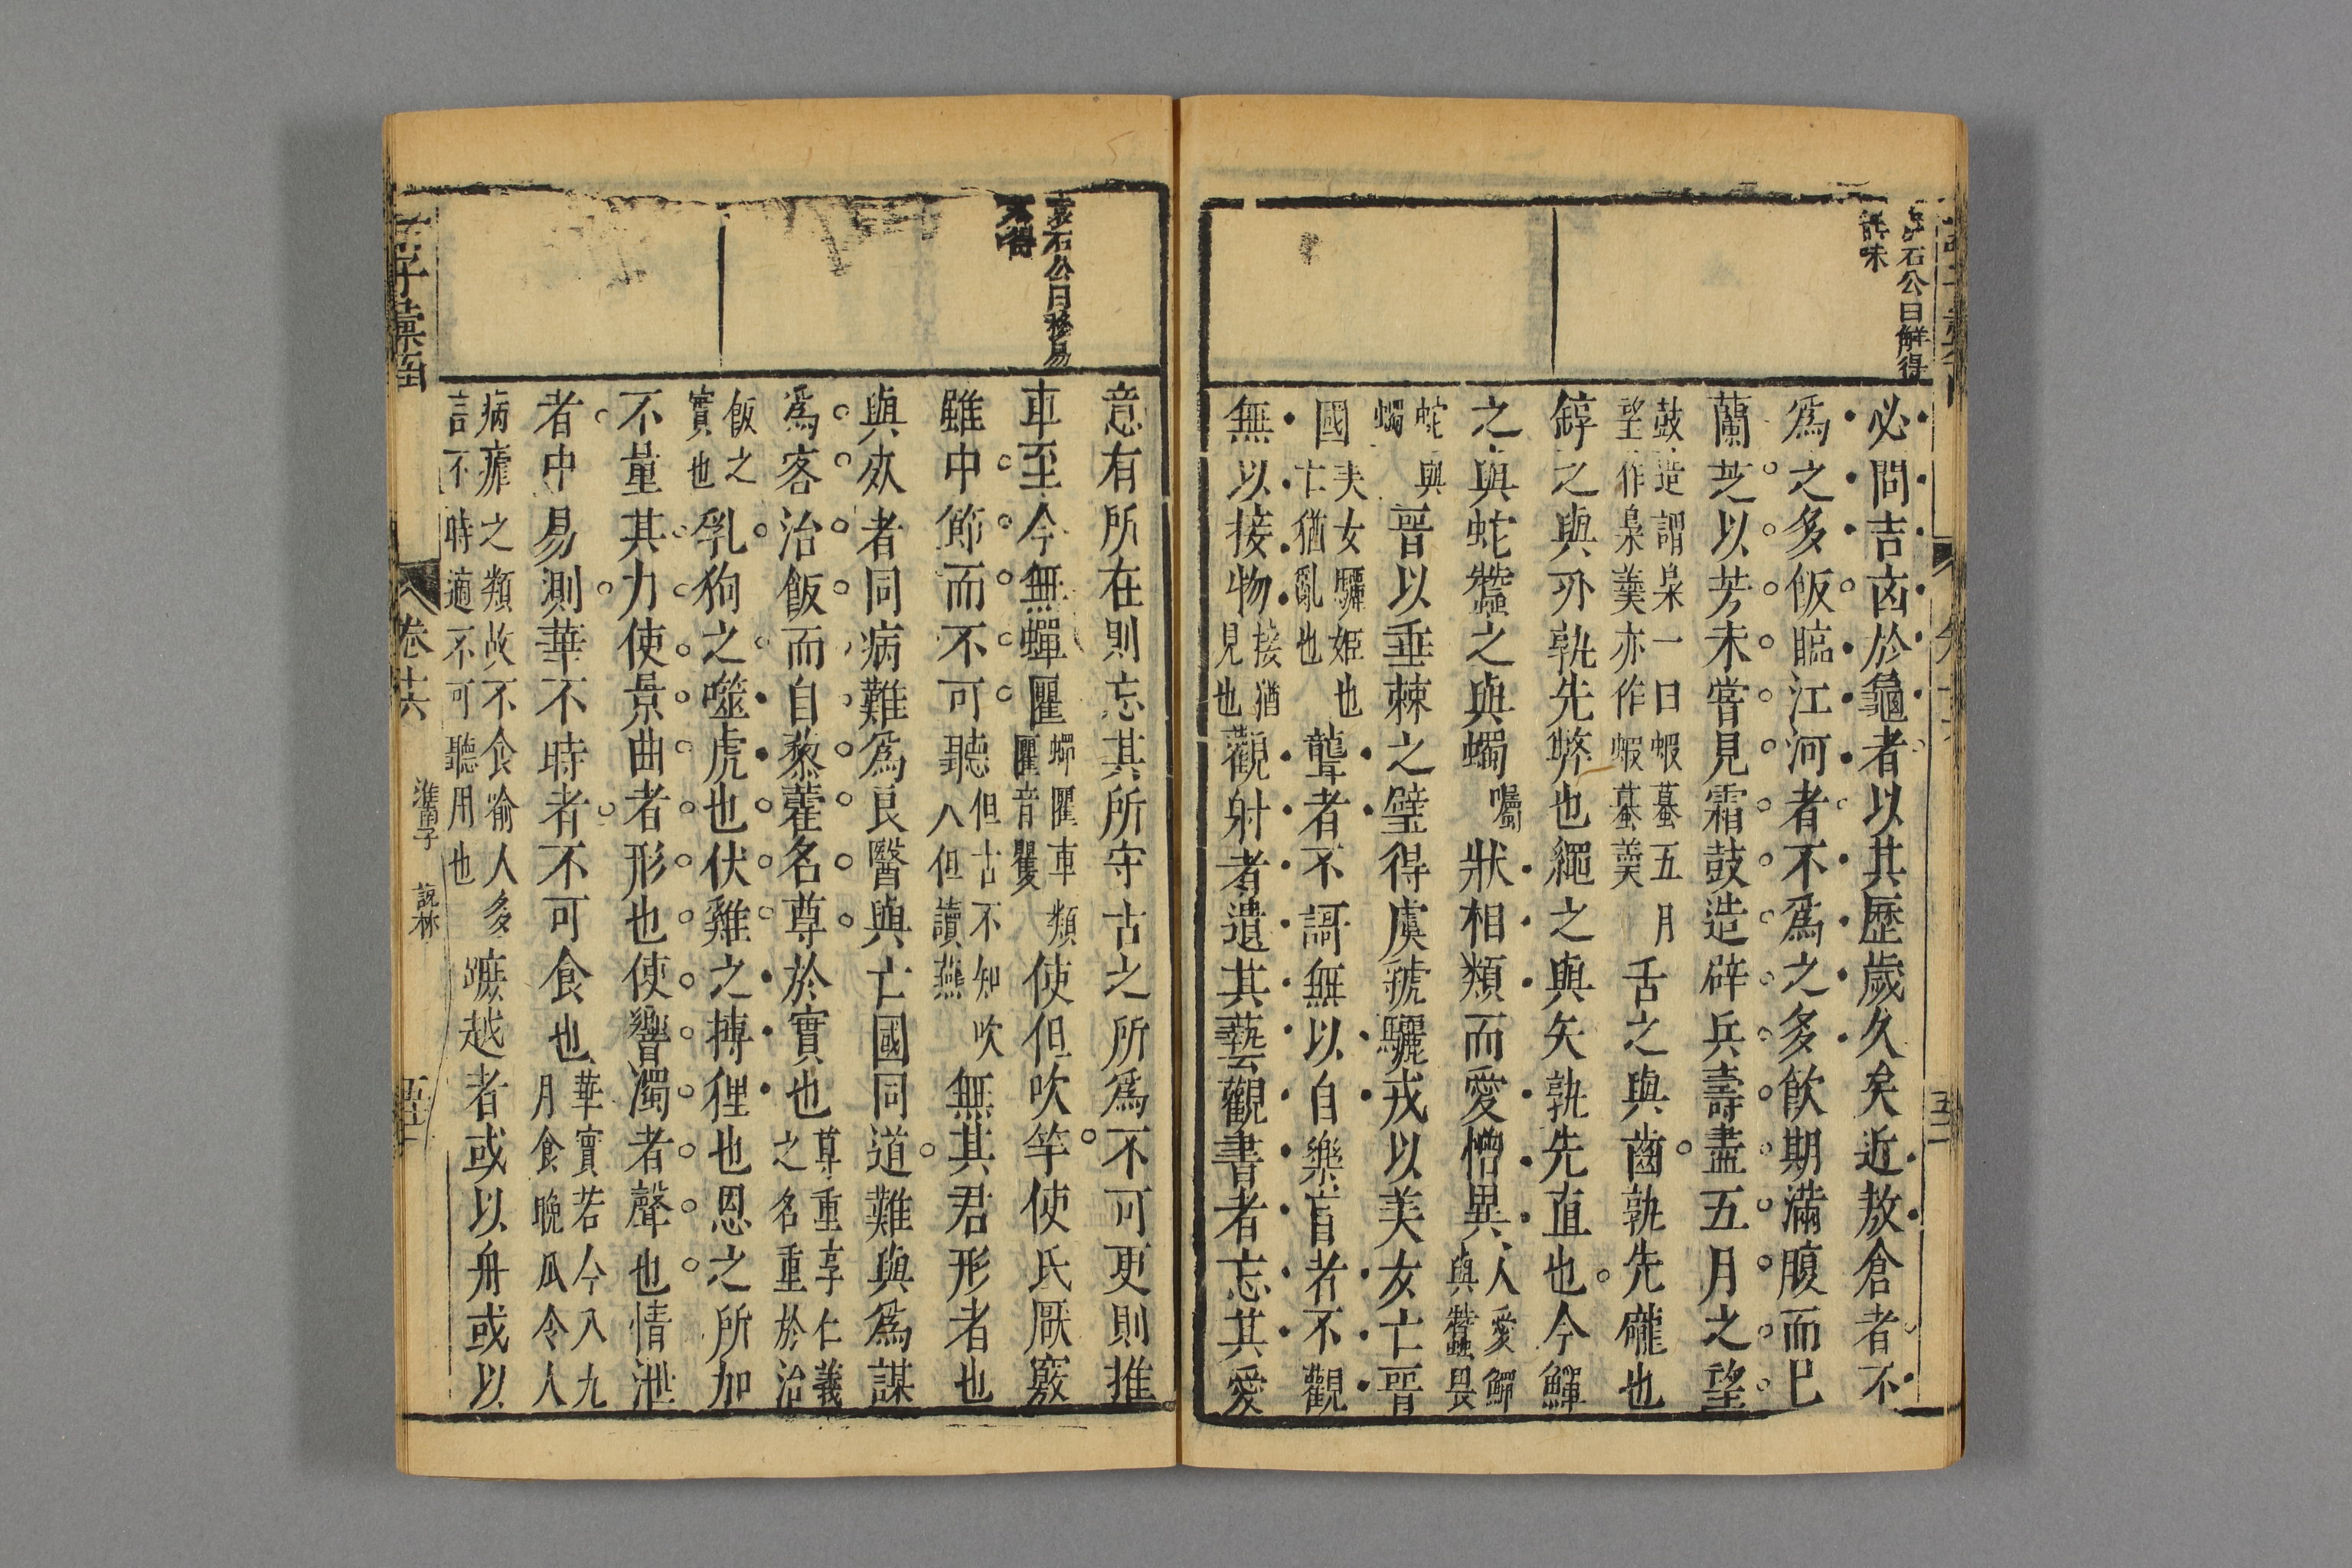 石公曰解得
誐味
必問吉凶於龜者以其歷歲久矣近敖倉者不
爲之多飯臨江河者不爲之多飲期滿腹而已
蘭芝以芳未嘗見霜鼓造辟兵壽盡五月之望
鼓造謂梟一曰蝦蟇五月
望作梟羹亦作蝦蟇羹
舌之與齒孰先礲也
錞之與刃孰先弊也繩之與矢孰先直也今鱓
之與蛇蠶之與蠋
蠋
狀相類而愛憎異
人愛鱓
與蠶畏
蛇與
蠋
晉以垂棘之璧得虞虢驪戎以美女亡晉
國
夫女驪姬也
亡猶亂也
聾者不謌無以自樂盲者不觀
無以接物
接猶
見也
觀射者遺其藝觀書者忘其愛
石公曰移易
不得
意有所在則忘其所守古之所爲不可更則推
車至今無蟬匷
蟬匷車類
匷音矍
使但吹竽使氏厭竅
雖中節而不可聽
但古不知吹
人但讀燕
無其君形者也
與死者同病難爲良醫與亡國同道難與爲謀
爲客治飯而自藜藿名尊於實也
尊重享仁義
之名重於治
飯之
實也
乳狗之噬虎也伏雞之搏狸也恩之所加
不量其力使景曲者形也使響濁者聲也情泄
者中易測華不時者不可食也
華實若今八九
月食晚瓜令人
病瘧之類故不食喻人多
言不時適不可聽用也
蹠越者或以舟或以
卷十六
淮南子
說林